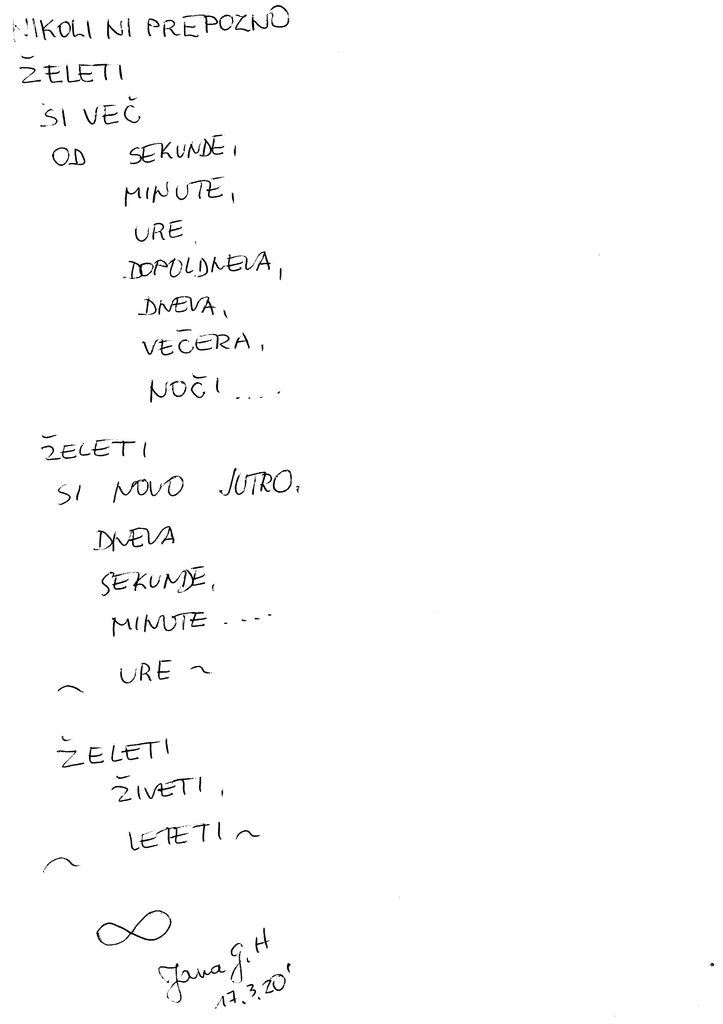 NIKOLI NI PREPOZNO
ŽELETI
SI VEČ
OD SEKUNDE,
MINUTE,
URE,
DOPOLDNEVA,
DNEVA,
VEČERA,
NOČI ....
ŽELETI
SI NOVO JUTRO,
DNEVA
SEKUNDE,
MINUTE ....
~ URE ~
ŽELETI
ŽIVETI,
~ LETETI ~
∞
Jana G. H
17.3.20'